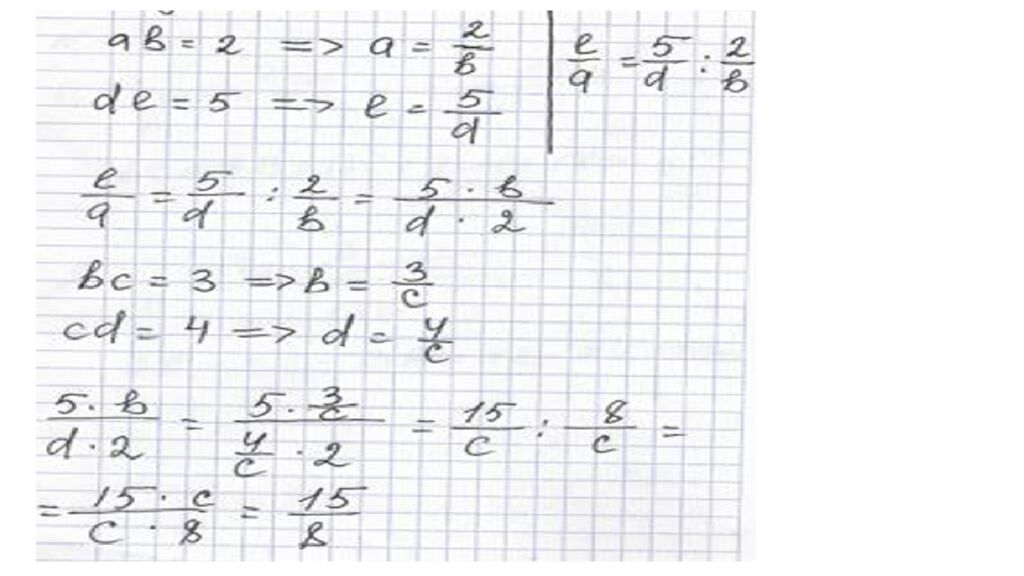 ab = 2 => a = 2/b
de = 5 => e = 5/d
e/a = 5/d : 2/b
e/a = 5/d : 2/b = 5·b/d·2
bc = 3 => b = 3/c
cd = 4 => d = 4/c
5·b/d·2 = 5·3/c/4/c·2 = 15/c : 8/c =
= 15·c/c·8 = 15/8